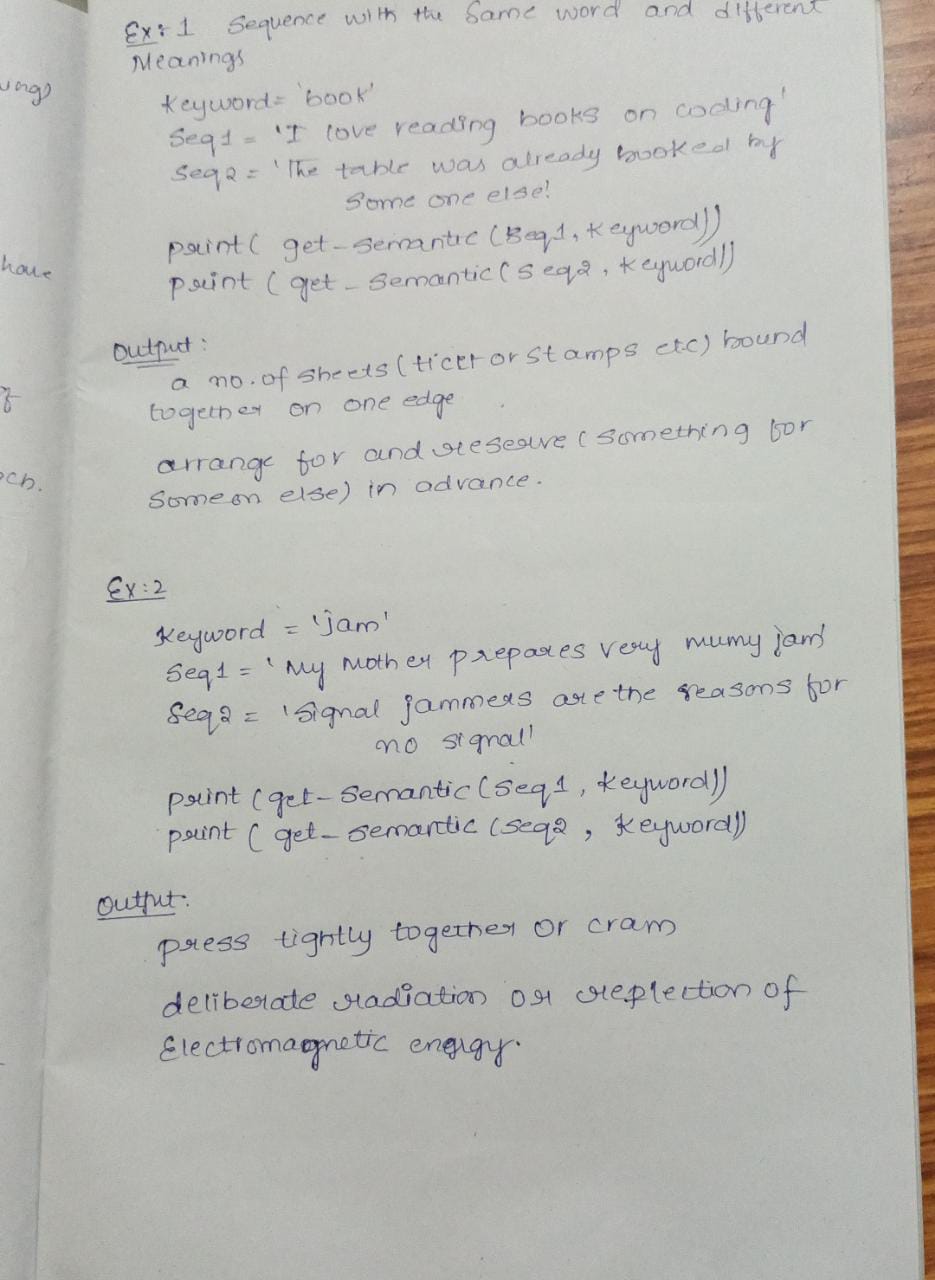 ungs
have
f
och.
Ex: 1 Sequence with the same word and different
Meanings
Keyword = 'book'
Seq1 = 'I love reading books on coding'
Seq2 = 'The table was already booked by
some one else!
print( get_semantic (Seq1, Keyword))
print ( get_semantic (seq2, keyword))
Output:
a no. of sheets (ticet or stamps etc) bound
together on one edge
arrange for and reserve (something for
someon else) in advance.
Ex:2
Keyword = 'jam'
Seq1 = 'My mother prepares very mumy jam'
Seq2 = 'signal jammers are the reasons for
no signal'
print (get_semantic (seq1, keyword))
print ( get_semantic (seq2, keyword))
Output:
press tightly together or cram
deliberate radiation or replection of
Electromagnetic energy.